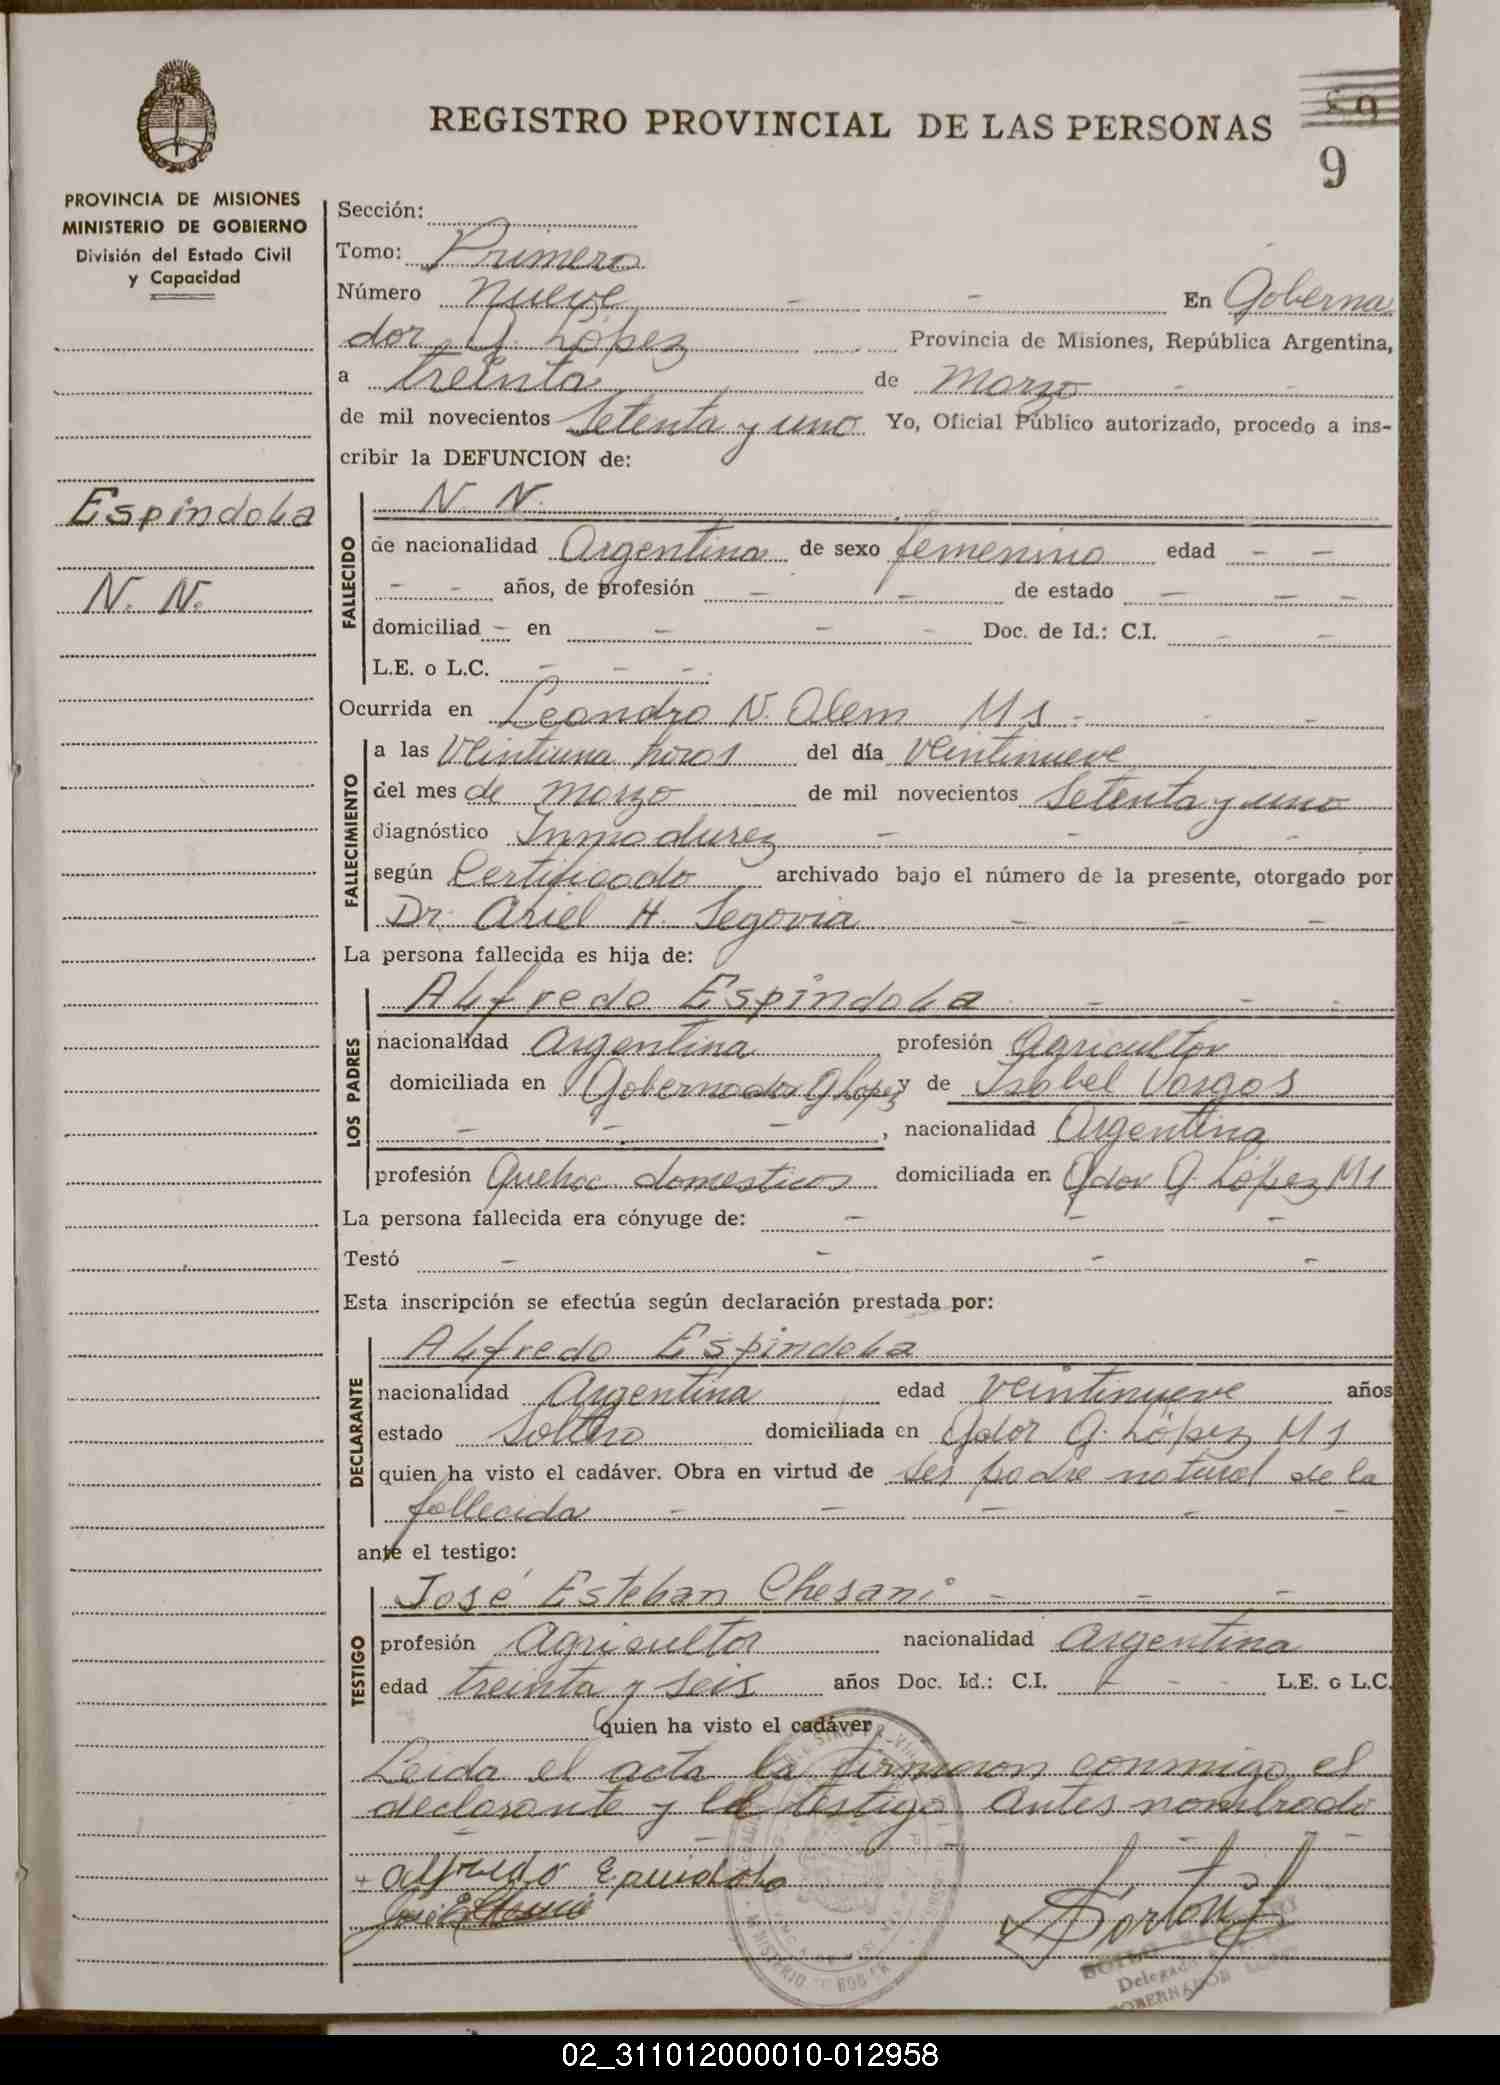 REGISTRO PROVINCIAL DE LAS PERSONAS
9
PROVINCIA DE MISIONES
MINISTERIO DE GOBIERNO
División del Estado Civil
y Capacidad
Espindola
N. N.
Sección:
Tomo: Primero
Número nueve - - En Goberna
dor G. López Provincia de Misiones, República Argentina,
a treinta de marzo - -
de mil novecientos Setenta y uno Yo, Oficial Público autorizado, procedo a ins-
cribir la DEFUNCION de:
FALLECIDO
N. N.
de nacionalidad Argentina de sexo femenino edad - -
- - años, de profesión - - de estado - - -
domiciliad - en - - - Doc. de Id.: C.I. - -
L.E. o L.C. - - -
Ocurrida en Leandro N. Alem Ms - - -
FALLECIMIENTO
a las Veintiuna horas del día veintinueve
del mes de marzo de mil novecientos Setenta y uno
diagnóstico Inmadurez - - -
según Certificado archivado bajo el número de la presente, otorgado por
Dr. Ariel H. Segovia - - -
La persona fallecida es hija de:
LOS PADRES
Alfredo Espindola - - -
nacionalidad Argentina, profesión Agricultor
domiciliada en Gobernador G López y de Isabel Vargas
- - -, nacionalidad Argentina
profesión Quehac domesticos domiciliada en Gdor G. López Ms
La persona fallecida era cónyuge de: - - -
Testó - - - -
Esta inscripción se efectúa según declaración prestada por:
DECLARANTE
Alfredo Espindola
nacionalidad Argentina edad veintinueve años
estado Soltero domiciliada en Gdor G. López Ms
quien ha visto el cadáver. Obra en virtud de ser padre natural de la
fallecida - - - - -
ante el testigo:
TESTIGO
José Esteban Chesani - - -
profesión Agricultor nacionalidad Argentina
edad treinta y seis años Doc. Id.: C.I. - - - L.E. o L.C.
quien ha visto el cadáver
Leida el acta la firmaron conmigo el
declarante y el testigo antes nombrado
- - - -
Alfredo Epindola
Delegado
GOBERNADOR
02_311012000010-012958